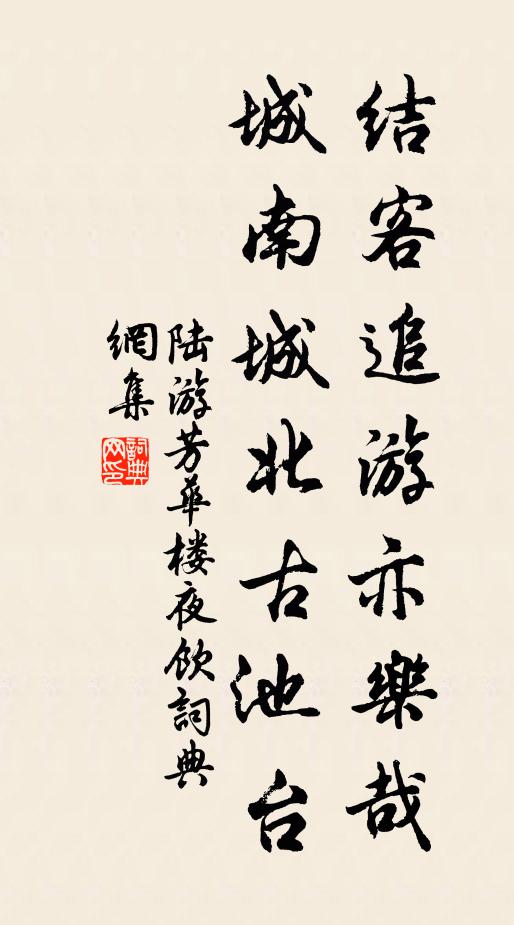 结客追游亦樂哉
城南城北古池台
陆游芳華楼夜飲詞典
網集
詞典
网印